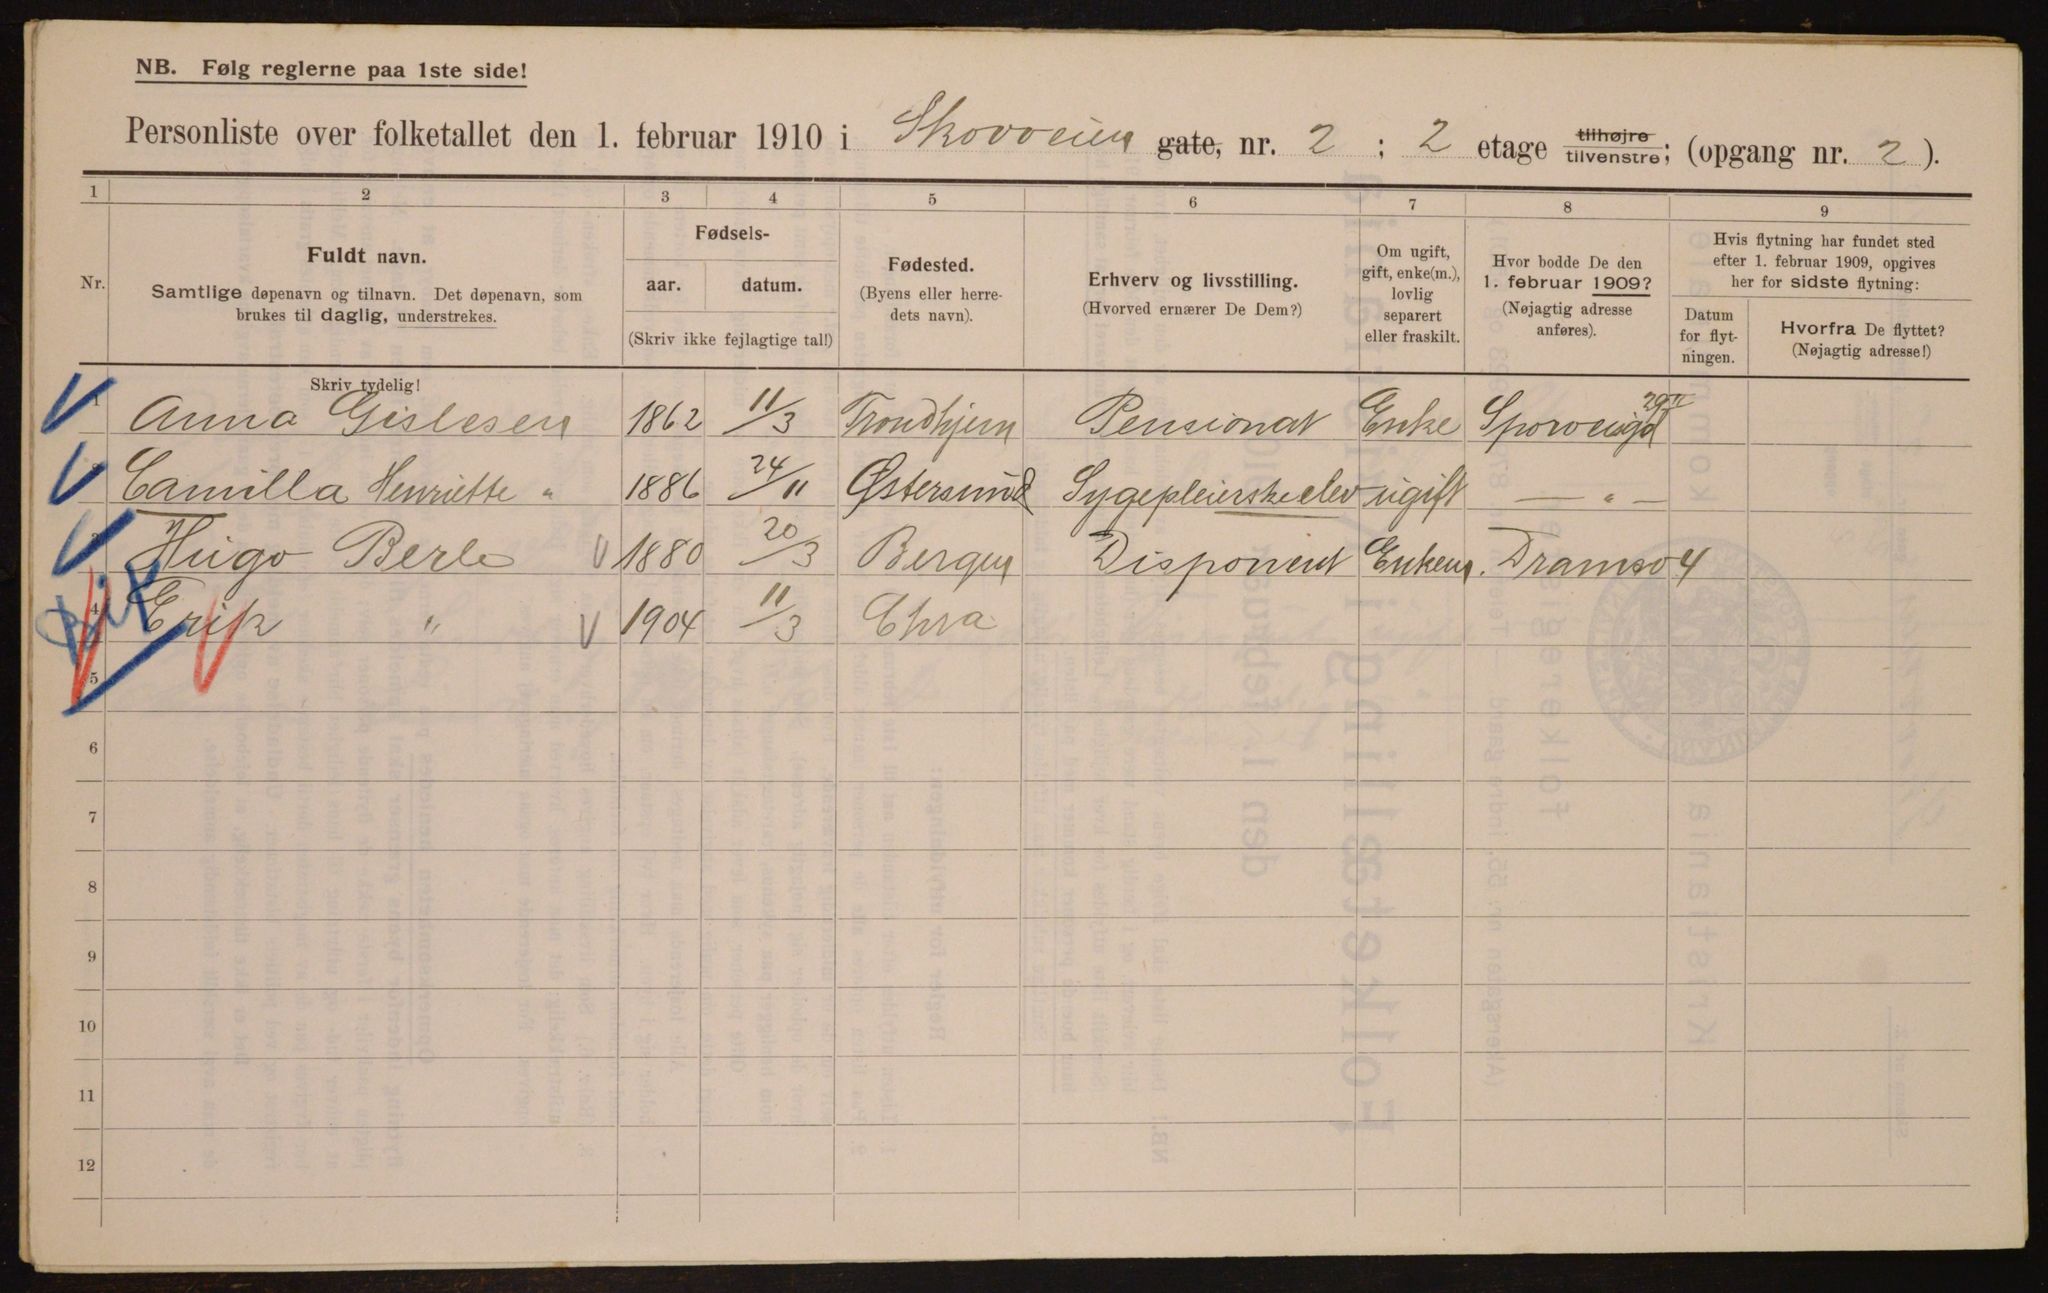 NB. Følg reglerne paa 1ste side!
Personliste over folketallet den 1. februar 1910 i Skovveien gate, nr. 2 ; 2 etage tilhøjre/tilvenstre; (opgang nr. 2 ).
1 2 3 4 5 6 7 8 9
Nr.
Fuldt navn.
Samtlige døpenavn og tilnavn. Det døpenavn, som
brukes til daglig, understrekes.
Skriv tydelig!
Fødsels-
aar. datum.
(Skriv ikke fejlagtige tal!)
Fødested.
(Byens eller herre-
dets navn).
Erhverv og livsstilling.
(Hvorved ernærer De Dem?)
Om ugift,
gift, enke(m.),
lovlig
separert
eller fraskilt.
Hvor bodde De den
1. februar 1909?
(Nøjagtig adresse
anføres).
Hvis flytning har fundet sted
efter 1. februar 1909, opgives
her for sidste flytning:
Datum
for flyt-
ningen.
Hvorfra De flyttet?
(Nøjagtig adresse!)
1 Anna Gislesen 1862 11/3 Trondhjem Pensionat Enke
2 Camilla Henriette " 1886 24/11 Østersund Sygepleierskeelev ugift — " —
3 Hugo Berle 1880 20/3 Bergen Disponent Enkem. Dramsv 4
4 Erik " 1904 11/3 Chra
5
6
7
8
9
10
11
12